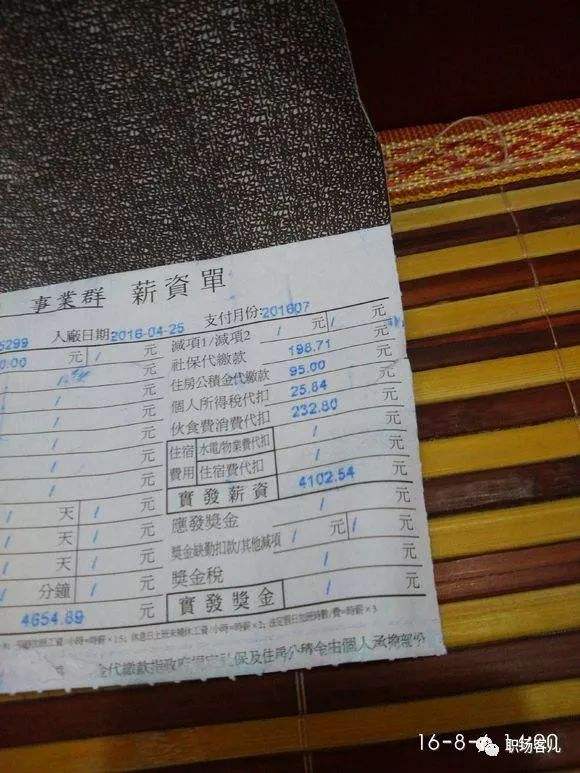 事業群 薪資單
5299 入廠日期:2016-04-25 支付月份:201607
0:00 元 / 元 減項1/減項2 / 元 / 元
元 社保代繳款 198.71 元
/ 元 住房公積金代繳款 95.00 元
/ 元 個人所得稅代扣 25.84 元
/ 元 伙食費消費代扣 232.80 元
/ 元 住宿費用 水電/物業費代扣 / 元
/ 元 住宿費代扣 / 元
/ 元 實發薪資 4102.54 元
/ 天 / 元 應發獎金 / 元
/ 天 / 元 獎金缺勤扣款/其他減項 / 元 / 元
/ 天 / 元 獎金稅 / 元
/ 分鐘 / 元 實發獎金 / 元
4654.89 元
工資/小時=時薪×1.5; 休息日上班未補休工資/小時=時薪×2; 法定假日加班時數/費=時薪×3
金代繳款指政府規定社保及住房公積金由個人承擔部份
16-8- 14:00
职场客儿